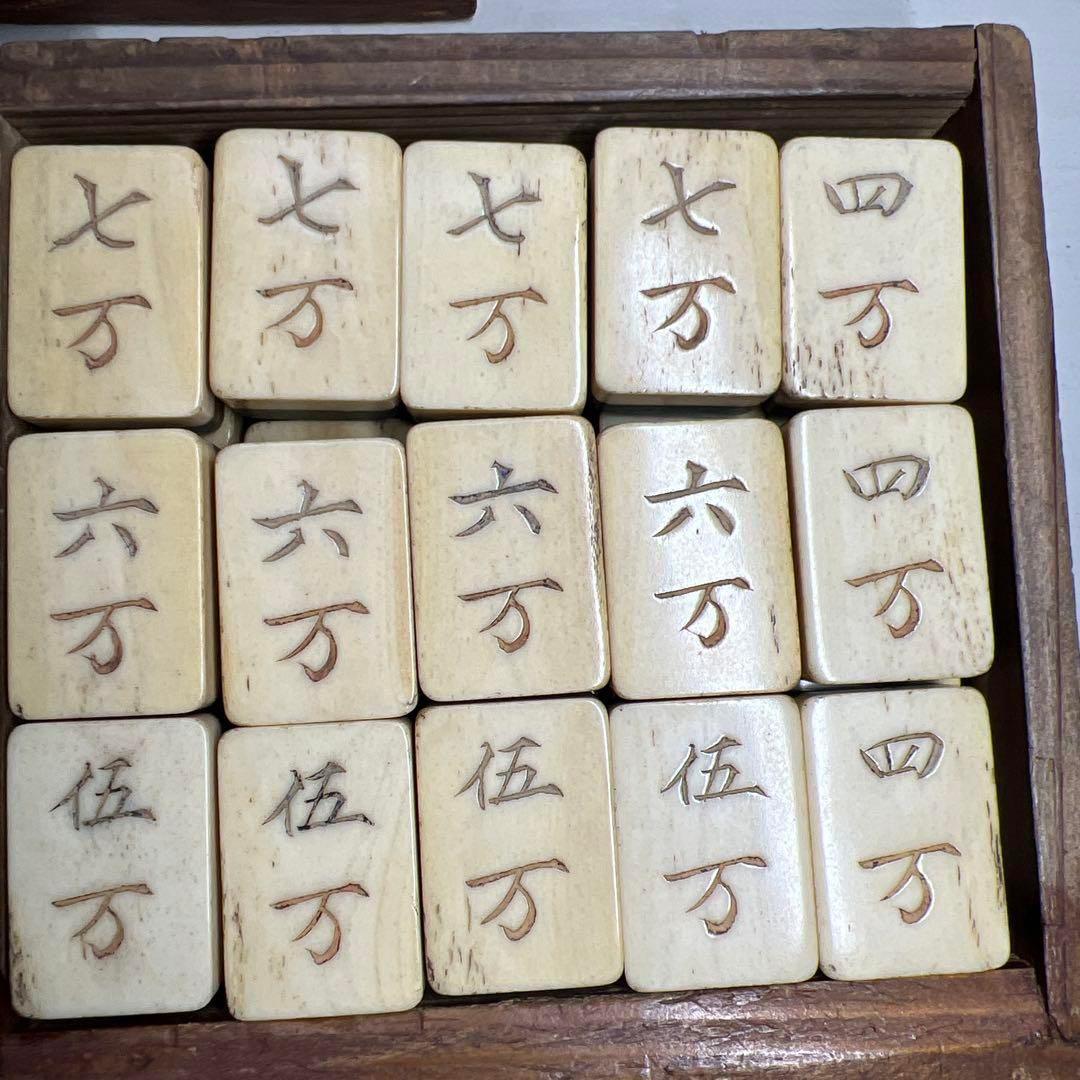 七 七 七 七 四
万 万 万 万 万
六 六 六 六 四
万 万 万 万 万
伍 伍 伍 伍 四
万 万 万 万 万